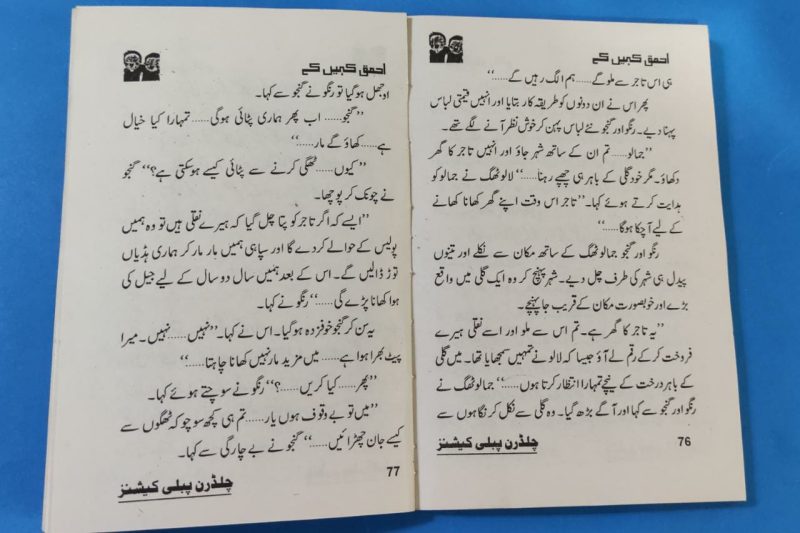 احمق کہیں کے
ہی اس تاجر سے ملو گے...... ہم الگ رہیں گے......‘‘
پھر اس نے ان دونوں کو طریقہ کار بتایا اور انہیں قیمتی لباس
پہنا دیے۔ رنگو اور گنجو نئے لباس پہن کر خوش نظر آنے لگے تھے۔
’’جمالو...... تم ان کے ساتھ شہر جاؤ اور انہیں تاجر کا گھر
دکھاؤ۔ مگر خود گلی کے باہر ہی چھپے رہنا......‘‘ لالو ٹھگ نے جمالو کو
ہدایت کرتے ہوئے کہا۔ ’’تاجر اس وقت اپنے گھر کھانا کھانے
کے لیے آ چکا ہوگا......‘‘
رنگو اور گنجو جمالو ٹھگ کے ساتھ مکان سے نکلے اور تینوں
پیدل ہی شہر کی طرف چل دیے۔ شہر پہنچ کر وہ ایک گلی میں واقع
بڑے اور خوبصورت مکان کے قریب جا پہنچے۔
’’یہ تاجر کا گھر ہے۔ تم اس سے ملو اور اسے نقلی ہیرے
فروخت کر کے رقم لے آؤ جیسا کہ لالو نے تمہیں سمجھایا تھا۔ میں گلی
کے باہر درخت کے نیچے تمہارا انتظار کرتا ہوں......‘‘ جمالو ٹھگ نے
رنگو اور گنجو سے کہا اور آگے بڑھ گیا۔ وہ گلی سے نکل کر نگاہوں سے
76
چلڈرن پبلی کیشنز
احمق کہیں کے
اوجھل ہو گیا تو رنگو نے گنجو سے کہا۔
’’گنجو...... اب پھر ہماری پٹائی ہوگی...... تمہارا کیا خیال
ہے...... کھاؤ گے مار......‘‘
’’کیوں...... ٹھگی کرنے سے پٹائی کیسے ہو سکتی ہے؟‘‘ گنجو
نے چونک کر پوچھا۔
’’ایسے کہ اگر تاجر کو پتا چل گیا کہ ہیرے نقلی ہیں تو وہ ہمیں
پولیس کے حوالے کر دے گا اور سپاہی ہمیں مار مار کر ہماری ہڈیاں
توڑ ڈالیں گے۔ اس کے بعد ہمیں سال دو سال کے لیے جیل کی
ہوا کھانا پڑے گی......‘‘ رنگو نے کہا۔
یہ سن کر گنجو خوفزدہ ہو گیا۔ اس نے کہا۔ ’’نہیں...... نہیں۔ میرا
پیٹ بھرا ہوا ہے...... میں مزید مار نہیں کھانا چاہتا......‘‘
’’پھر...... کیا کریں......؟‘‘ رنگو نے سوچتے ہوئے کہا۔
’’میں تو بے وقوف ہوں یار...... تم ہی کچھ سوچو کہ ٹھگوں سے
کیسے جان چھڑائیں......‘‘ گنجو نے بے چارگی سے کہا۔
77
چلڈرن پبلی کیشنز